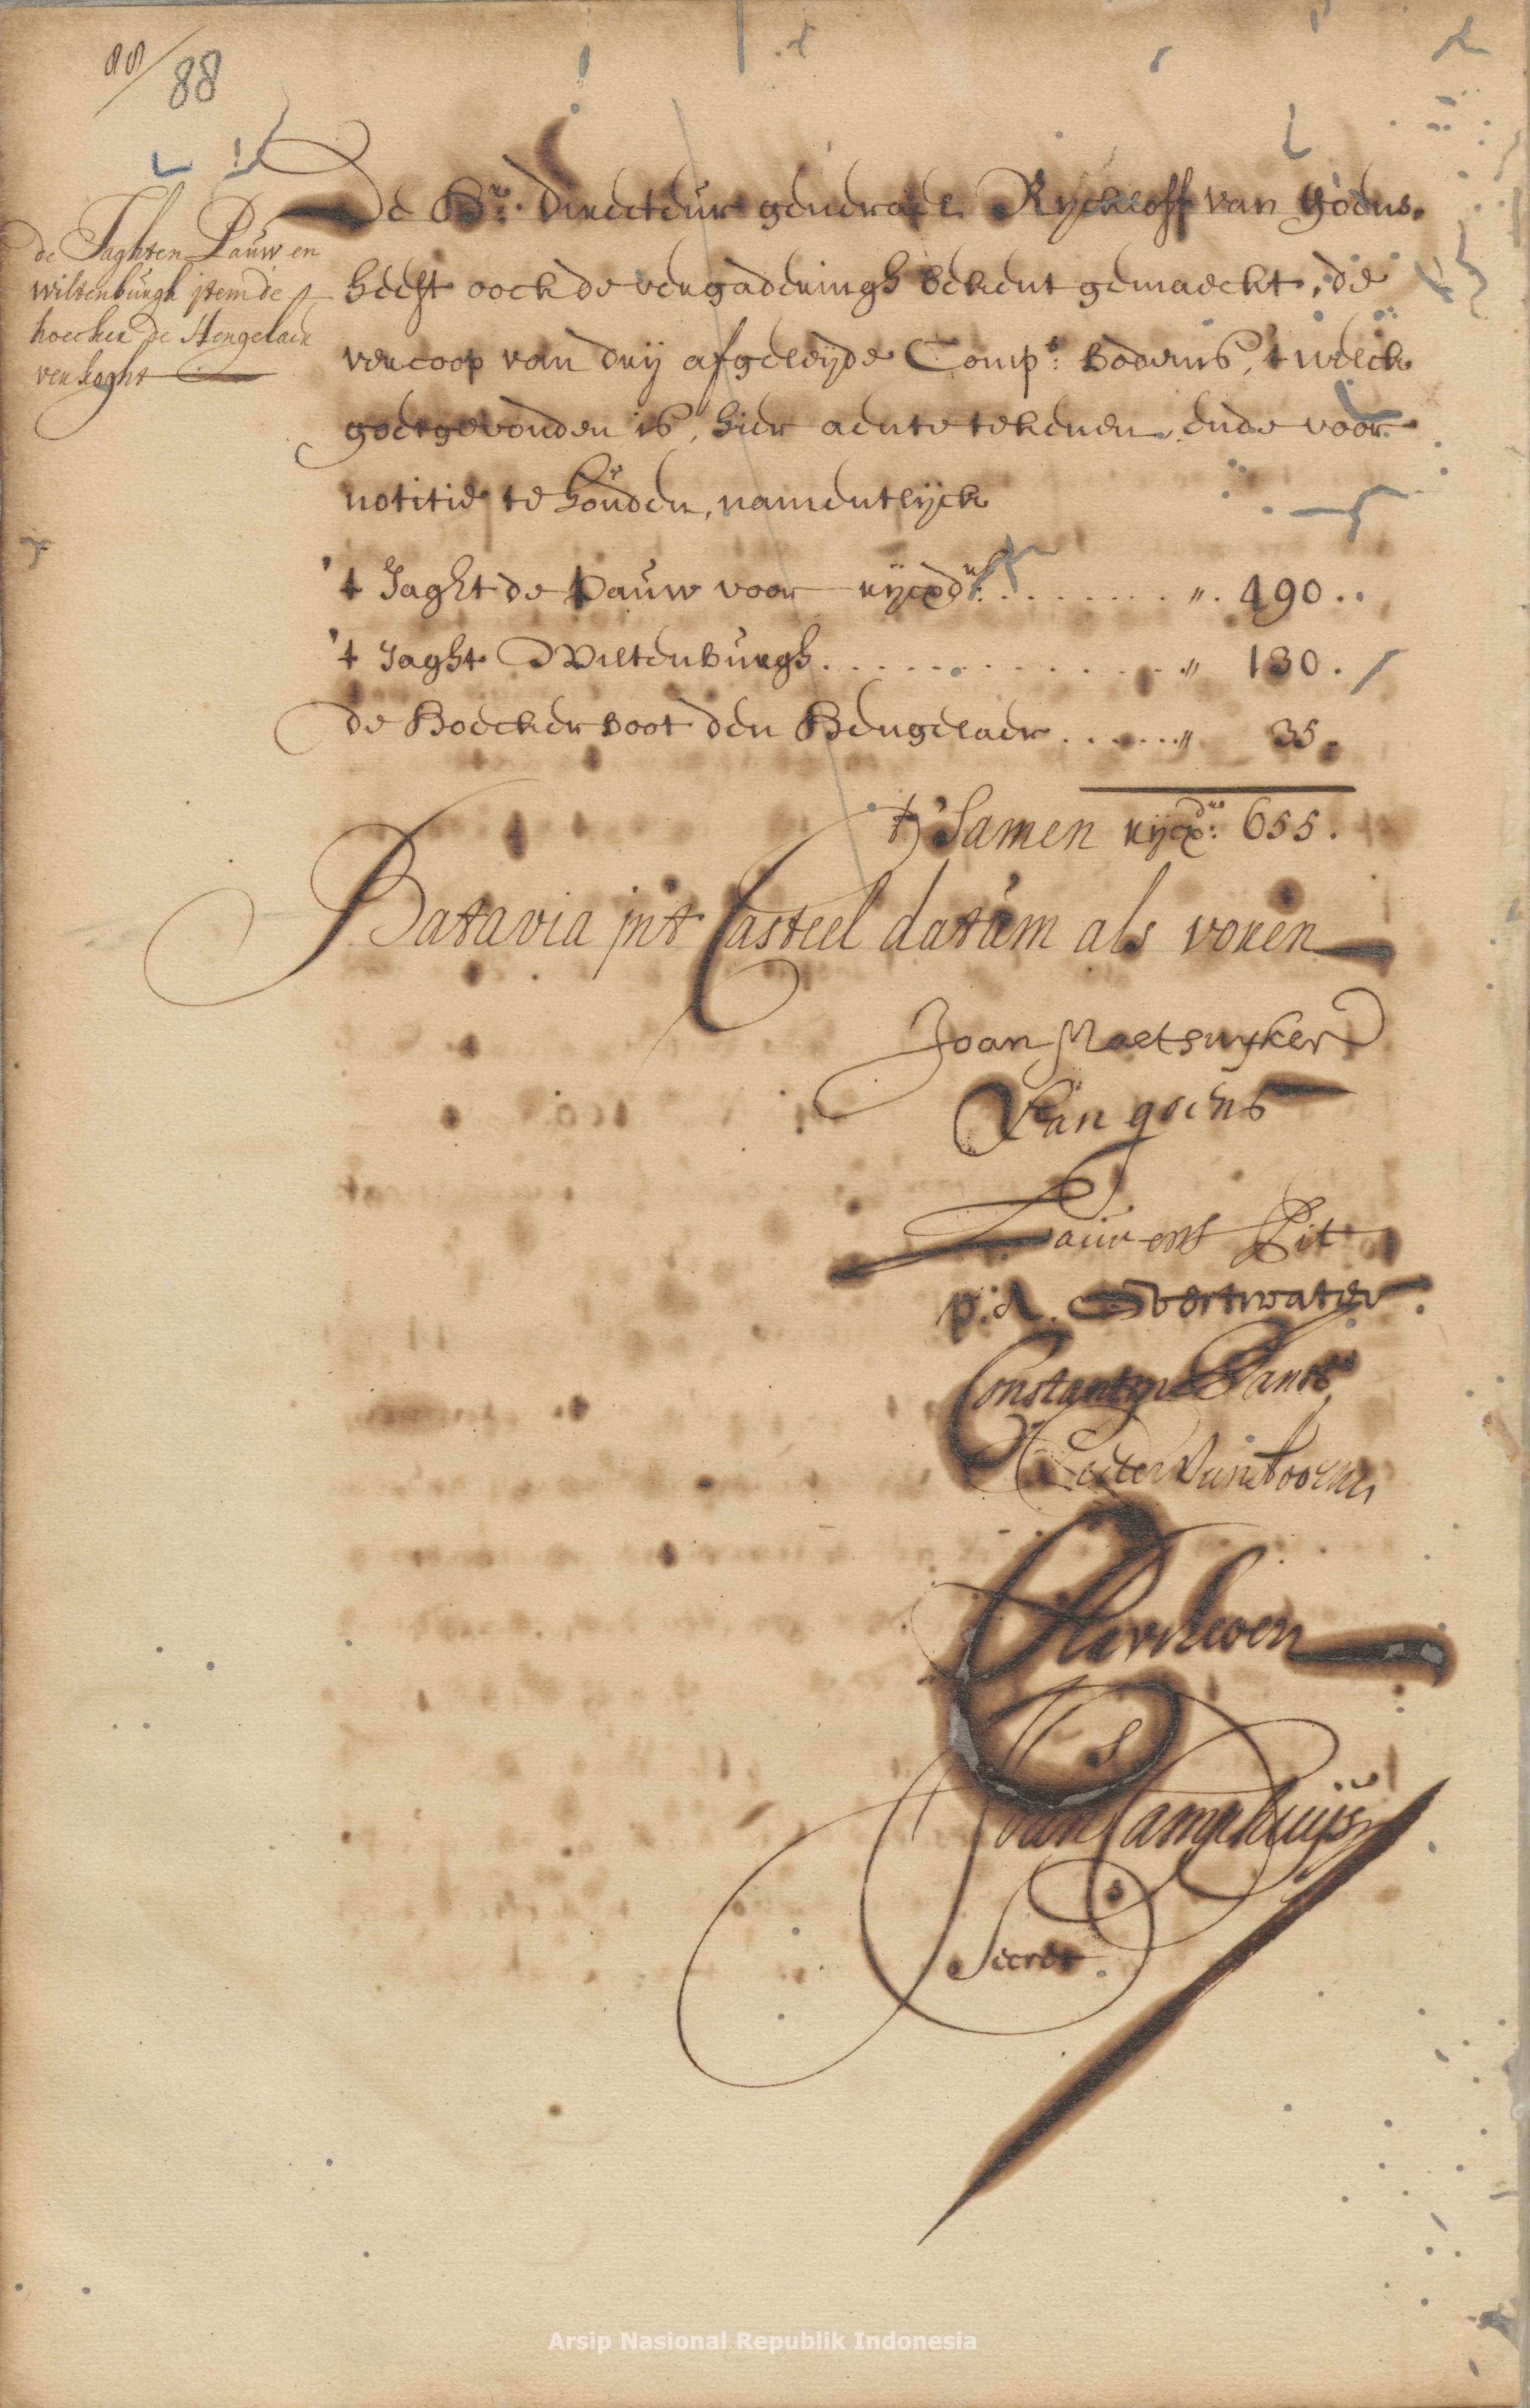 88/ 88
de Jaghten Pauw en
wiltenburgh jtem de
hoecker de Hengelaer
verkoght
De Hr: directeur generael Ryckloff van Goens
heeft oock de vergaderingh bekent gemaeckt, de
vercoop van drij afgeleijde Comps: bodems, 't welck
goetgevonden is, hier aen te tekenen, ende voor
notitie te houden, namentlijck
't Jaght de Pauw voor rijcxdrs: . . . . . . . . . „ . 490 . .
't Jaght Wiltenburgh . . . . . . . . . . . . . . „ 130 .
de Hoecker boot den Hengelaer . . . . . . „ 35 .
t'Samen rijcxdrs: 655 .
Batavia int Casteel datum als voren
Joan Maetsuyker
Van goens
Laurens Pit
p: A. Overtwater
Constantyn Ranst
Pieter Van hoorn
Joan Camphuijs
Secrets
Arsip Nasional Republik Indonesia